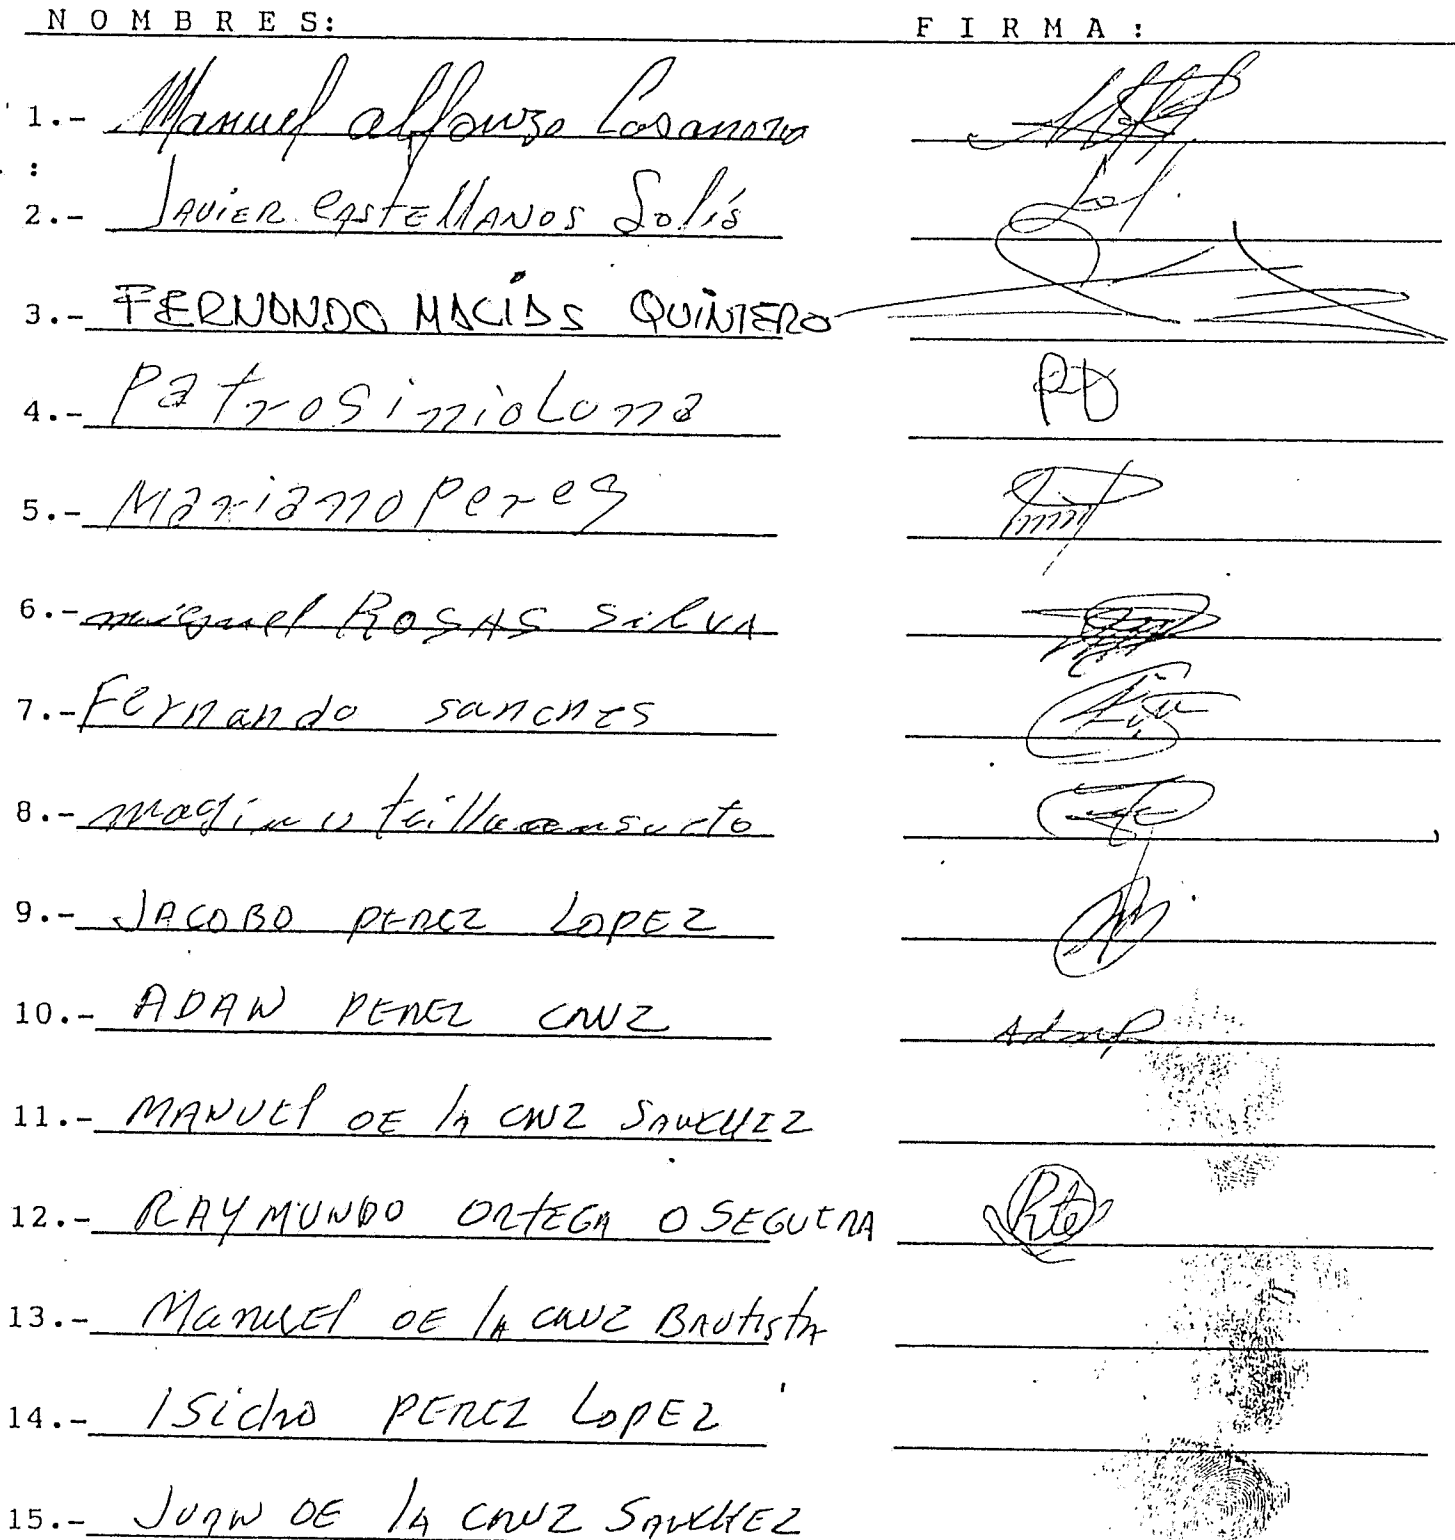 N O M B R E S: F I R M A :
1.- Manuel alfonzo Casanova
2.- JAVIER CASTELLANOS Solís
3.- FERNANDO MACÍAS QUINTERO
4.- Patrosinio Luna PD
5.- Mariano Peres
6.- miguel ROSAS SilVA
7.- Fernando sanches
8.- magin
9.- JACOBO PEREZ LOPEZ
10.- ADAN PEREZ CRUZ Adan P
11.- MANUEl DE lA CRUZ SANCHEZ
12.- RAYMUNDO ORTEGA OSEGUERA Rto
13.- Manuel DE lA CRUZ BAUtistA
14.- ISidro PEREZ LOPEZ
15.- JUAN DE lA CRUZ SANCHEZ